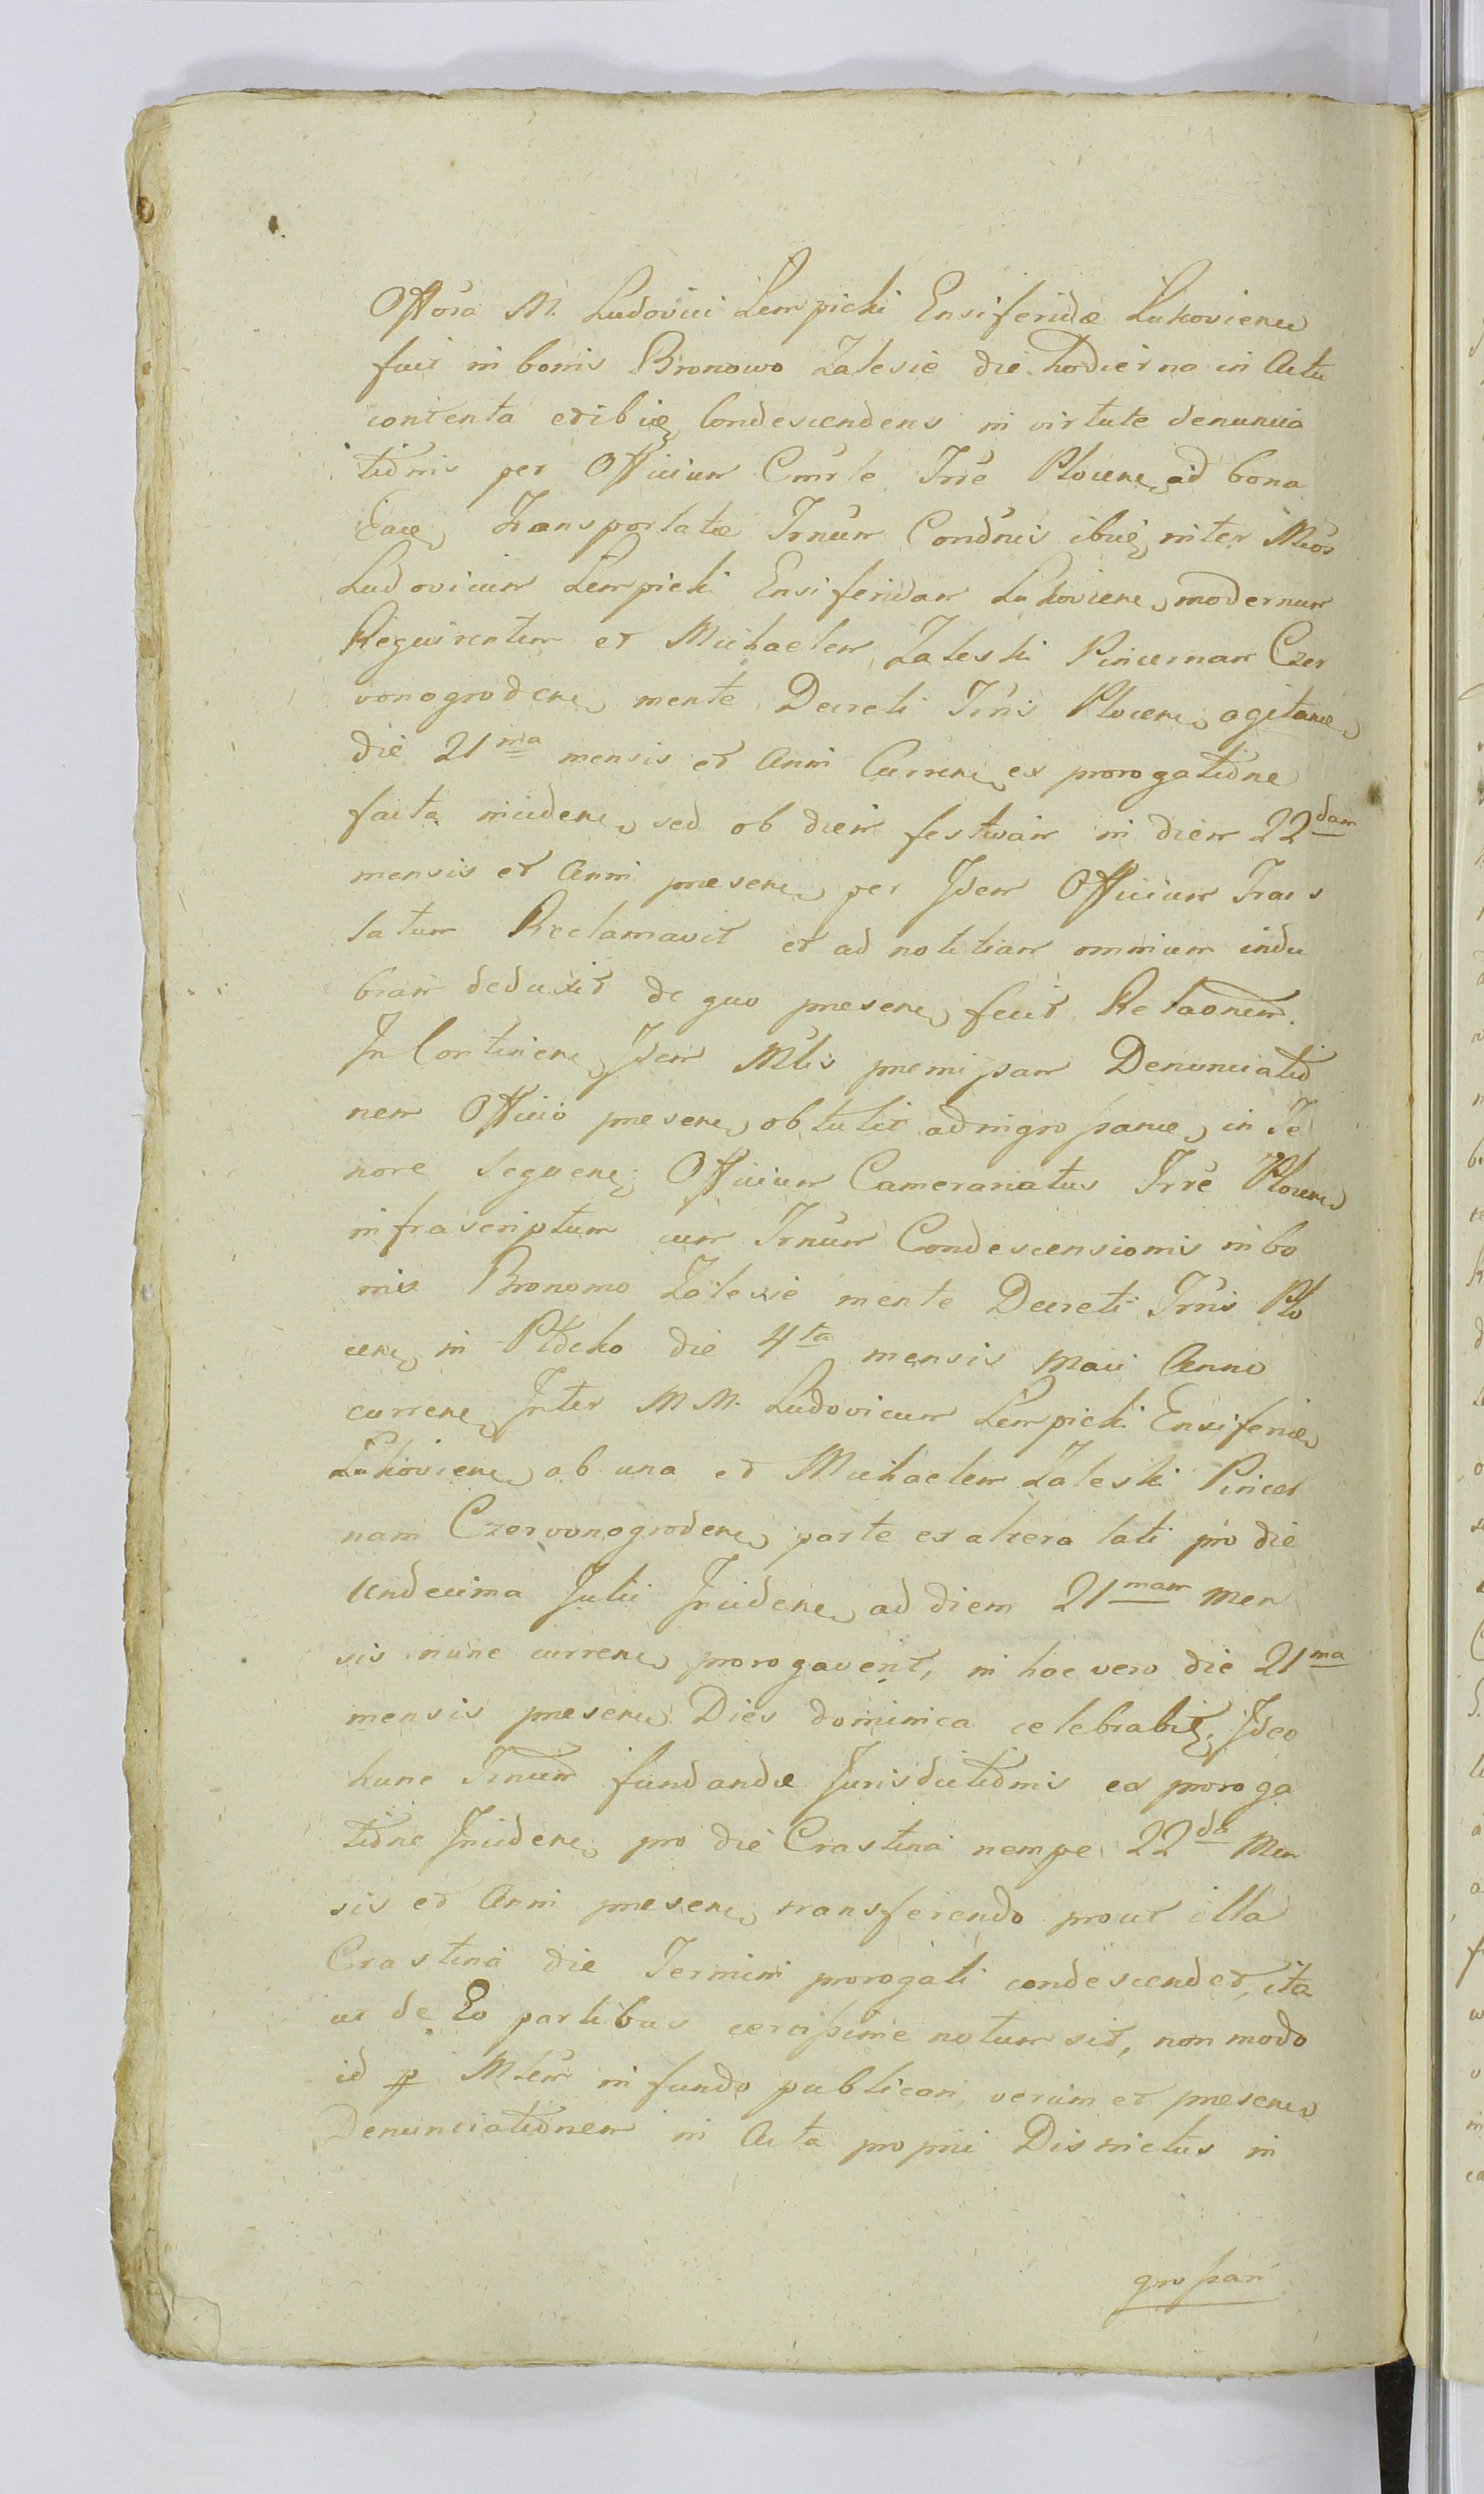 Offora M. Ludovici Lempicki Ensiferidæ Lukoviens
fuit in bonis Bronowo Zalesie die hodierna in Actu
contenta et ibiq Condescendens in virtute denuncia
tiōnis per Officium Cmrle Trrē Plocens ad bona
Eaq Transportatæ Trnūm Condnis ibiq inter Mcos
Ludovicum Lempicki Ensiferidam Lukoviens modernum
Requirentem et Michaelem Zaleski Pincernam Czer
vonogrodens mente Decreti Trris Plocens agitan
die 21ma mensis et Anni Currens ex prorogatiōne
facta inciden sed ob diem festivam in diem 22dam
mensis et Anni presens per Idem Officium Trans
latum Reclamavit et ad notitiam omnium indu
biam deduxit de quo presens fecit Relaonem.
In Continens Idem Mtlis premissam Denunciatiō
nem Officio presens obtulit ad ingrossan in Te
nore Sequens Officium Camerariatus Trrē Plocens
infrascriptum cum Trnūm Condescensionis in bo
nis Bronowo Zalesie mente Decreti Trris Plo
cens in Płocko die 4ta mensis Maii Anno
currens Inter M M. Ludovicum Lempicki Ensiferid
Lukoviens ab una et Michaelem Zaleski Pincer
nam Czervonogrodens parte ex altera lati pro die
Undecima Julii Inciden ad diem 21mam Men
sis nunc currens prorogaverit, in hoc vero die 21ma
mensis presens Dies dominica celebrabit, Ideo
hunc Trnūm fundandæ Jurisdictiōnis ex proroga
tiōne Inciden pro die Crastina nempe 22da Men
sis et Anni presens transferendo prout illa
Crastina die Termini prorogati condescendet, ita
ut de Eo partibus certissime notum sit, non modo
id p Mtlem in fundo publicari, verum et presens
Denunciatiōnem in Acta proprii Districtus in
grossari